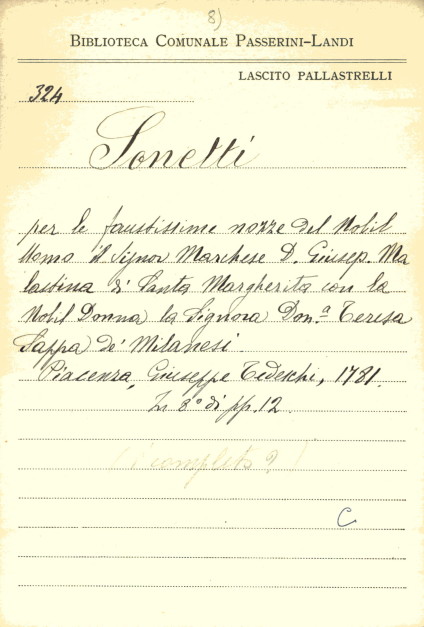 8)
BIBLIOTECA COMUNALE PASSERINI-LANDI
LASCITO PALLASTRELLI
324
Sonetti
per le faustissime nozze del Nobil
Uomo il Signor Marchese D. Giusep. Ma
laspina di Santa Margherita con la
Nobil Donna la Signora Don.a Teresa
Sappa de' Milanesi
Piacenza, Giuseppe Tedeschi, 1781.
In 8° di pp. 12.
(è completo?)
C